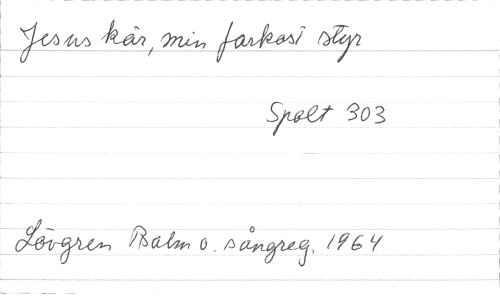 Jesus kär, min farkost styr
Spalt 303
Lövgren Psalm o. sångreg. 1964